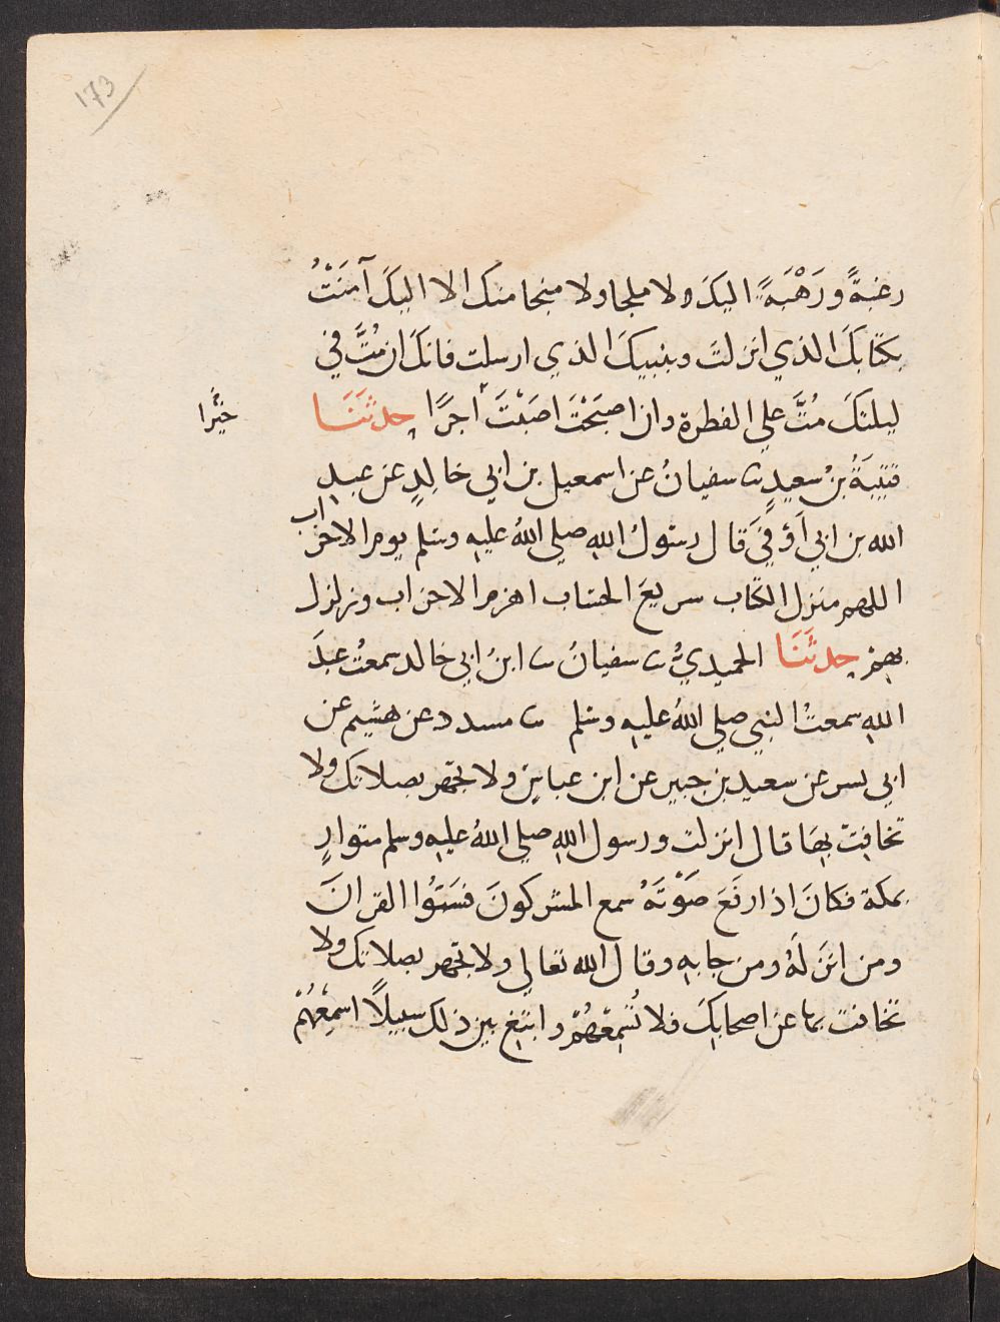 173
رغبةً ورَهْبَةً اليكَ ولا ملجا ولا منجا منك الا اليكَ آمَنْتُ
بكتابكَ الذي انزلتَ وبنبيكَ الذي ارسلت فانكَ ان مُتَّ في
ليلتكَ مُتَّ علي الفطرة وان اصبَحْتَ اصَبْتَ اجرًا حدثَنَا
خيرًا
قتيبَةُ بنُ سعيدٍ نا سفيانُ عن اسمعيل بن ابي خالدٍ عن عبدِ
الله بن ابي اَوْفيَ قال رسُولُ اللهِ صلي اللهُ عليهِ وسَلم يوم الاحزاب
اللهم منزل الكتاب سريعَ الحساب اهزم الاحزاب وزلزل
بهِمْ حدثَنَا الحميديُّ نا سفيانُ نا ابنُ ابي خالد سمعتُ عبدَ
اللهِ سمعتُ النبي صلي اللهُ عليهِ وسَلم نا مسدد عن هشيم عن
ابي بسر عن سعيد بن جبير عن ابن عباسٍ ولا تجهر بصلاتك ولا
تخافِت بهَا قال انزلت ورسول اللهِ صلي اللهُ عليهِ وسلم متوارٍ
بمكة فكانَ اذا رفَعَ صَوْتَهُ سمع المشركونَ فسَبُّوا القرانَ
ومن انزَلَهُ ومن جا بهِ وقال الله تعالي ولا تجهر بصلاتك ولا
تخافت بها عن اصحابِكَ فلا تُسْمِعْهُمْ وابتغ بين ذلك سبيلًا اسمِعْهُمْ